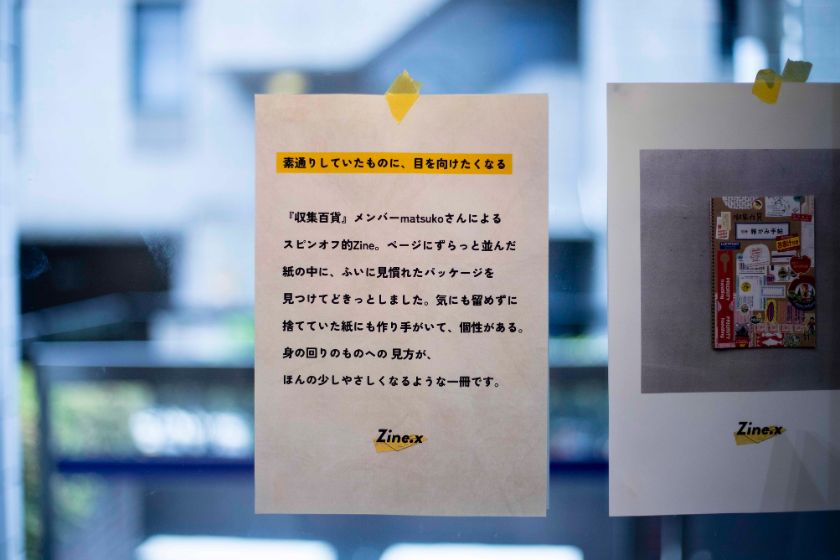 素通りしていたものに、目を向けたくなる
『収集百貨』メンバーmatsukoさんによる
スピンオフ的Zine。ページにずらっと並んだ
紙の中に、ふいに見慣れたパッケージを
見つけてどきっとしました。気にも留めずに
捨てていた紙にも作り手がいて、個性がある。
身の回りのものへの 見方が、
ほんの少しやさしくなるような一冊です。
Zine.x
収集百貨
雑がみ手帖
Zine.x